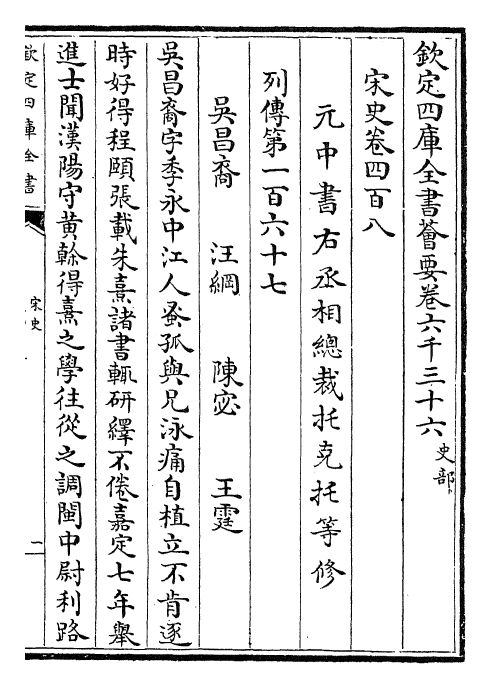 欽定四庫全書薈要卷六千三十六 史部
宋史卷四百八
元中書右丞相總裁托克托等修
列傳第一百六十七
吳昌裔 汪綱 陳宓 王霆
吳昌裔字季永中江人蚤孤與兄泳痛自植立不肯逐
時好得程頤張載朱熹諸書輒研繹不倦嘉定七年舉
進士聞漢陽守黄榦得熹之學往從之調閩中尉利路
欽定四庫全書
宋史